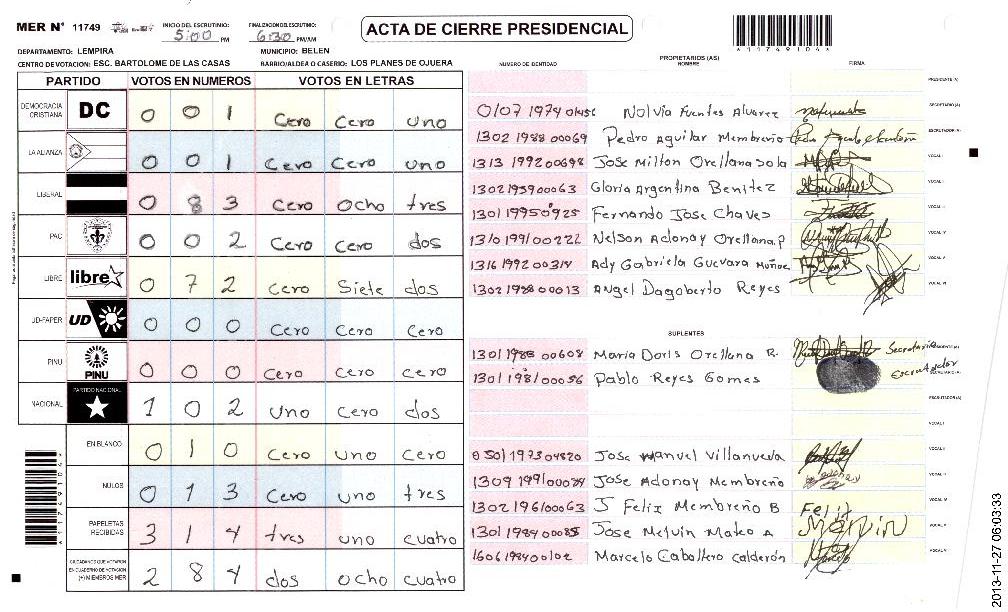 MER N° 11749
INICIO DEL ESCRUTINIO: 5:00 PM
FINALIZACION DEL ESCRUTINIO: 6:30 PM/AM
ACTA DE CIERRE PRESIDENCIAL
*11749104*
DEPARTAMENTO: LEMPIRA
MUNICIPIO: BELEN
CENTRO DE VOTACION: ESC. BARTOLOME DE LAS CASAS
BARRIO/ALDEA O CASERIO: LOS PLANES DE OJUERA
PARTIDO VOTOS EN NUMEROS VOTOS EN LETRAS
DEMOCRACIA CRISTIANA DC 0 0 1 Cero Cero uno
LA ALIANZA 0 0 1 Cero Cero uno
LIBERAL 0 8 3 Cero Ocho tres
PAC 0 0 2 Cero Cero dos
LIBRE libre 0 7 2 Cero Siete dos
UD-FAPER UD 0 0 0 Cero Cero Cero
PINU PINU 0 0 0 Cero Cero Cero
NACIONAL PARTIDO NACIONAL 1 0 2 uno Cero dos
EN BLANCO 0 1 0 Cero uno Cero
NULOS 0 1 3 Cero uno tres
PAPELETAS RECIBIDAS 3 1 4 tres uno cuatro
CIUDADANOS QUE VOTARON EN CUADERNO DE VOTACION (+) MIEMBROS MER 2 8 4 dos ocho cuatro
PROPIETARIOS (AS)
NUMERO DE IDENTIDAD NOMBRE FIRMA
PRESIDENTE (A)
Nolvia Fuentes Alvarez SECRETARIO (A)
1302 1988 00069 Pedro Aguilar Membreño ESCRUTADOR (A)
1313 1992 00698 Jose Milton Orellana sola VOCAL I
1302 1959 00063 Gloria Argentina Benitez VOCAL II
1301 1995 0925 Fernando Jose Chaves VOCAL III
1310 1991 00222 Nelson Adonay Orellana.P VOCAL IV
1316 1992 00314 Ady Gabriela Guevara Muñoz VOCAL V
1302 1988 00013 Angel Dagoberto Reyes VOCAL VI
SUPLENTES
1301 1988 00608 Maria Doris Orellana R. Secretaria
1301 1981 00056 Pablo Reyes Gomes Escrutador
ESCRUTADOR (A)
VOCAL I
0501 1973 04820 Jose Manuel Villanueva VOCAL II
1309 1991 00024 Jose Adonay Membreño VOCAL III
1302 1961 00063 J Felix Membreño B Felix VOCAL IV
1301 1984 00085 Jose Melvin Mateo A Melvin VOCAL V
1606 1984 00102 Marcelo Caballero calderón VOCAL VI
*11749104*
2013-11-27 06:03:33